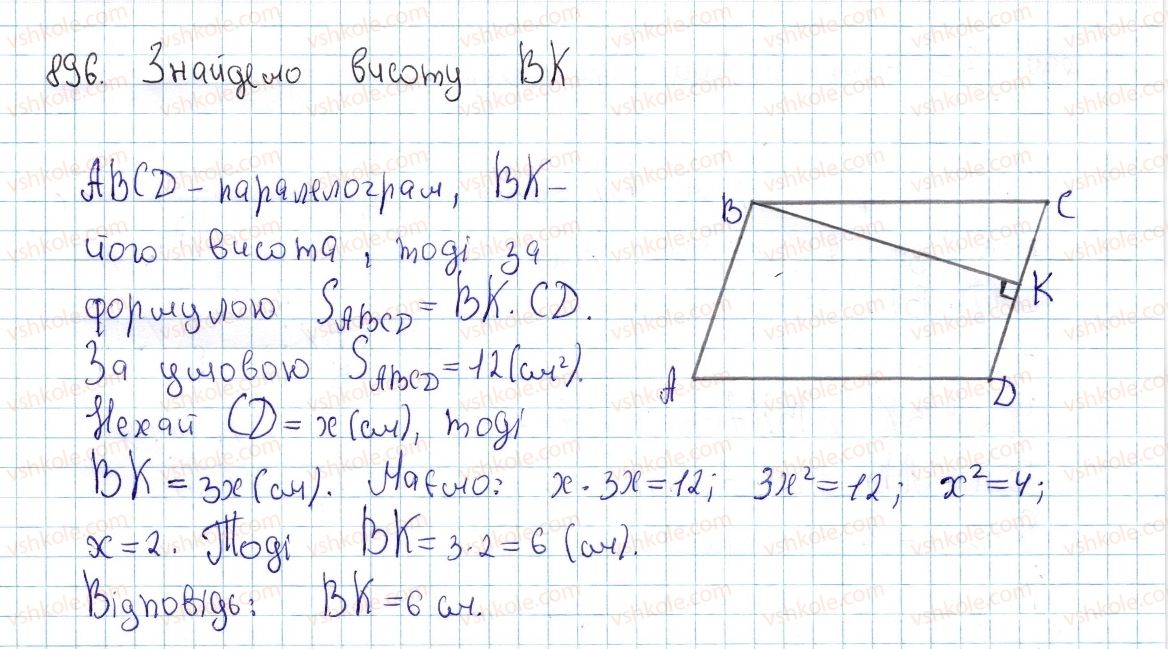 896. Знайдемо висоту BK
ABCD - паралелограм, BK -
його висота, тоді за
формулою S_ABCD = BK · CD.
За умовою S_ABCD = 12 (см²).
Нехай CD = x (см), тоді
BK = 3x (см). Маємо: x · 3x = 12; 3x² = 12; x² = 4;
x = 2. Тоді BK = 3 · 2 = 6 (см).
Відповідь: BK = 6 см.
B C
K
A D
vshkole.com